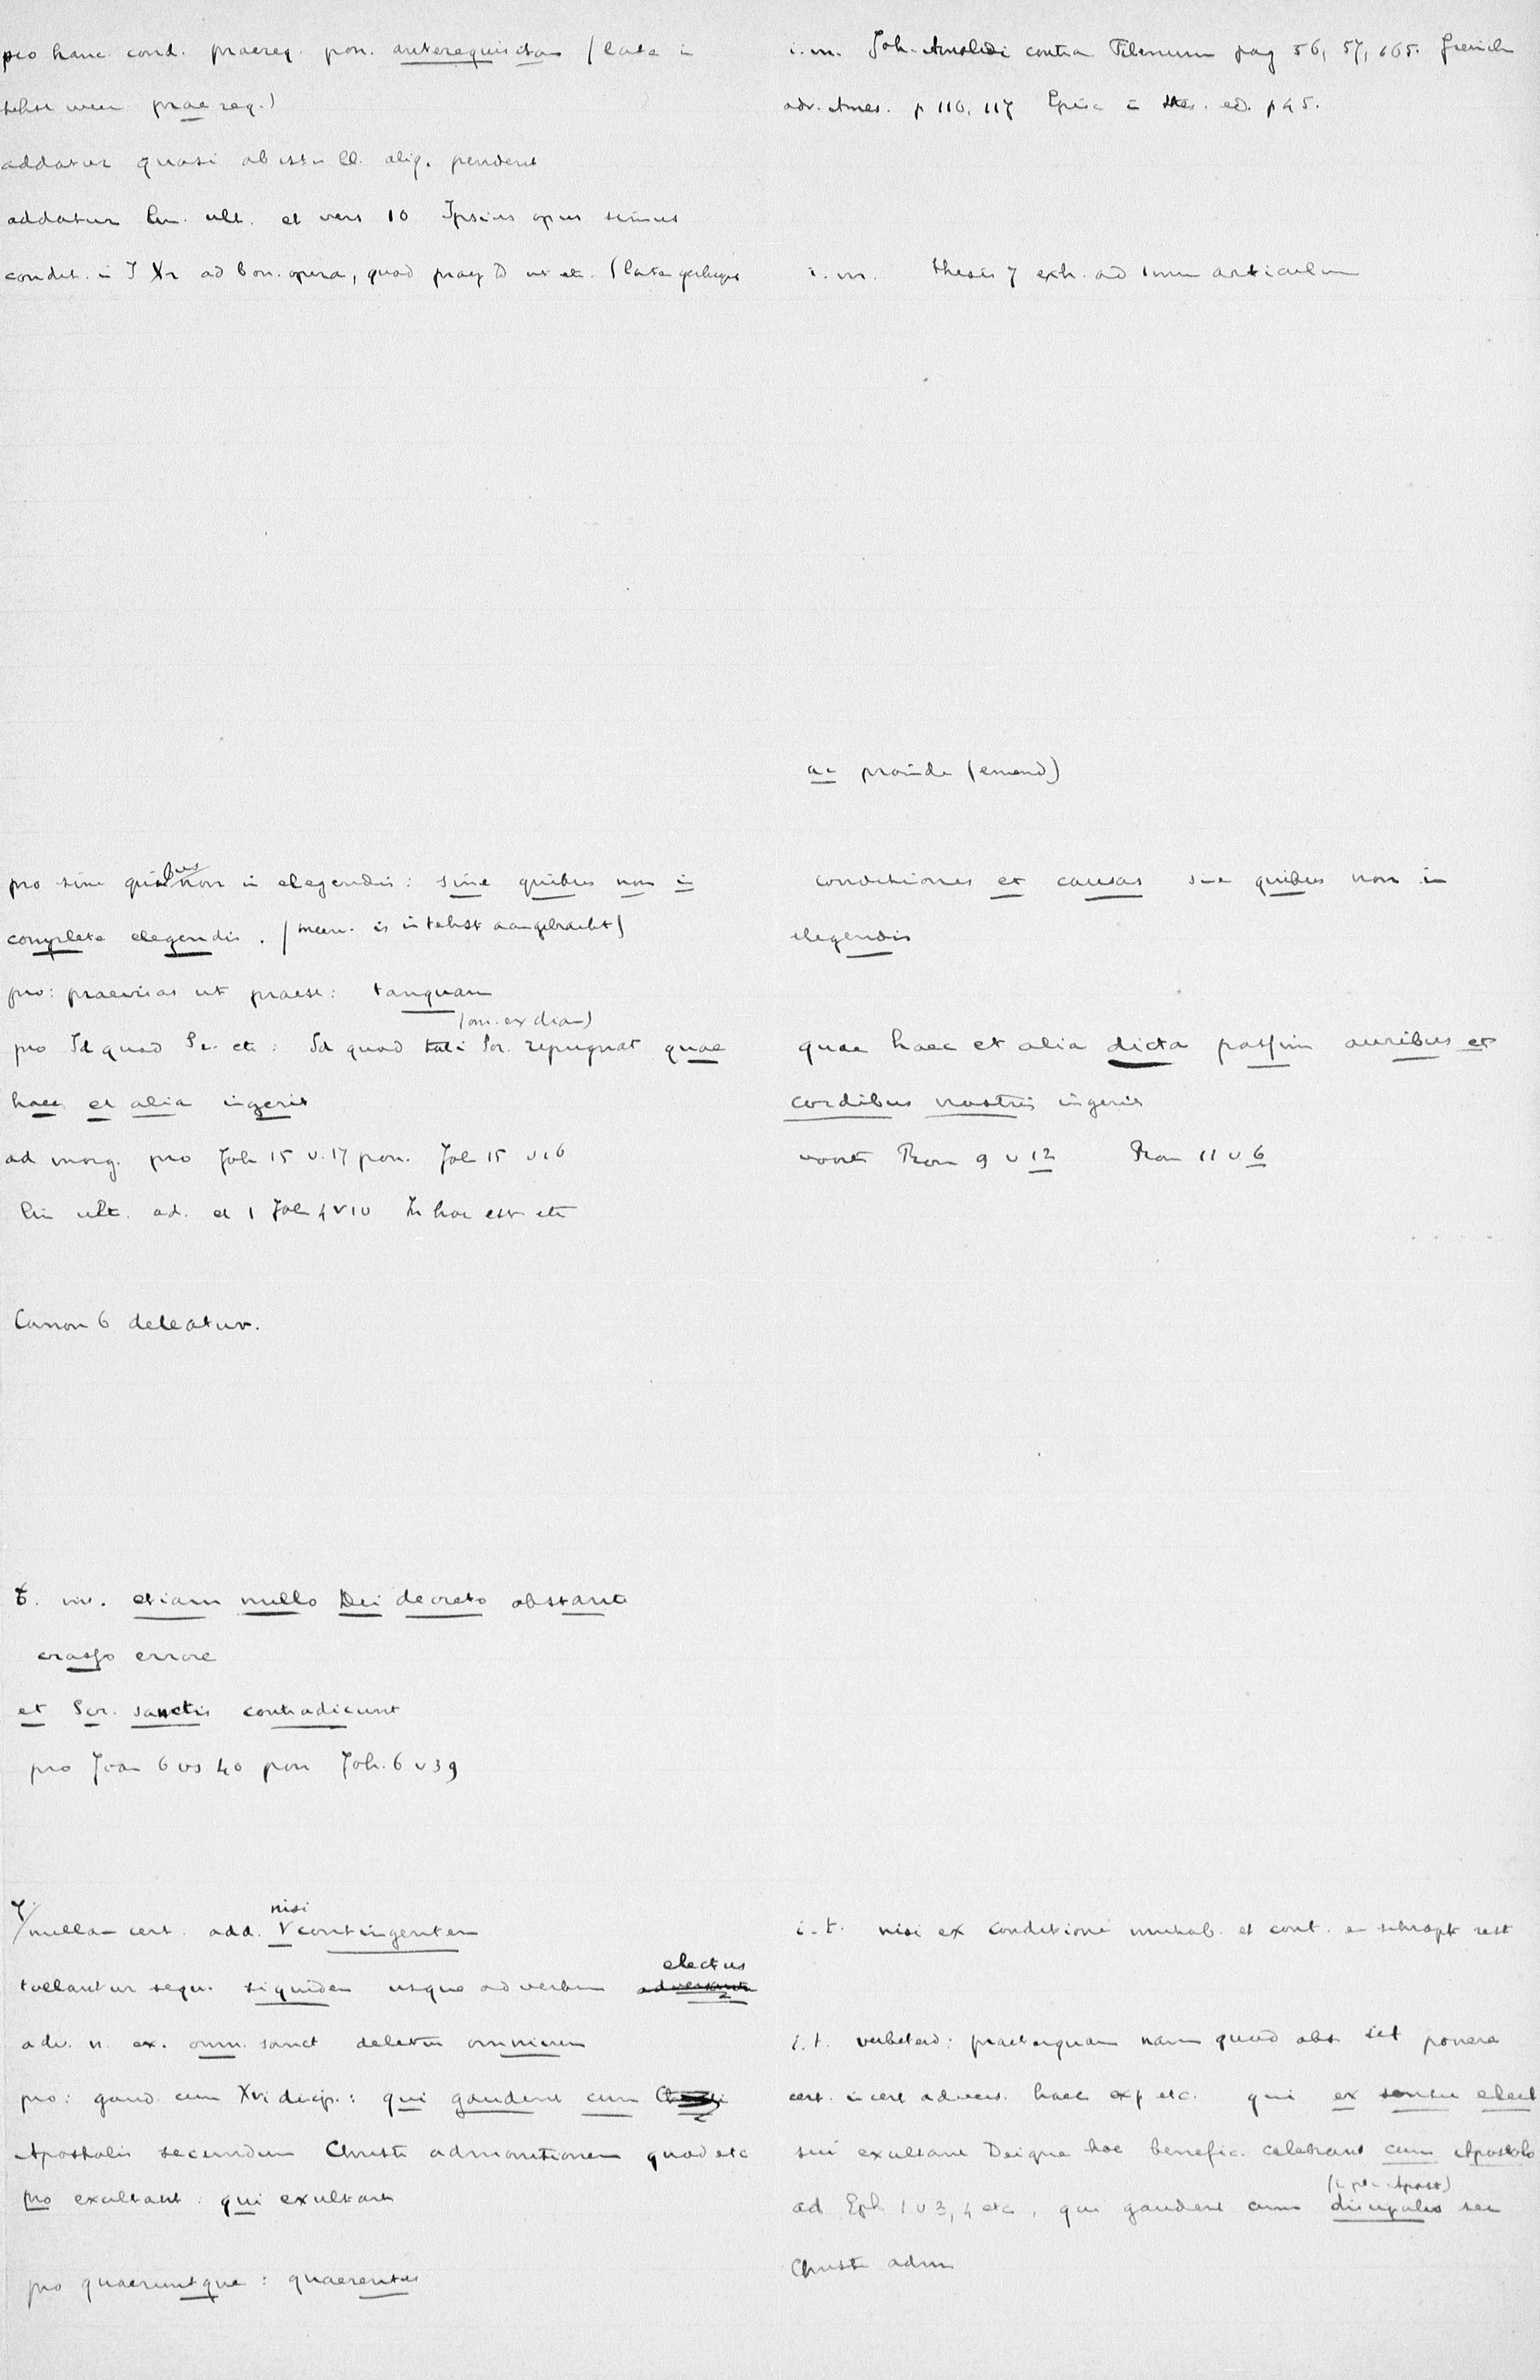 pro hanc. cond. praereq. pon. anterequisitam (late in
tekst weer praereq.)
addatur quasi ab istis ll. aliq. penderet
addatur lin. ult. et vers 10 Ipsius opus sumus
condit. in J Xr ad bon. opera, quod praep D ut etc. (late
pro sine quibus non in elegendis: sine quibus non in
complete elegendis. (meerv. is in tekst aangebracht)
pro: praevisas ut praest: tanquam
(om. ex dian)
pro Id quod Sc. etc: Id quod toti Scr. repugnat quae
haec et alia ingerit
ad marg. pro Joh 15 v. 17 pon. Joh 15 v 16
lin ult. ad. et 1 Joh 4 v 10 In hoc est etc
Canon 6 deleatur.
6. inv. etiam nullo Dei decreto obstante
crasso errore
et Scr. sanctis contradicunt
pro Joan 6 vs 40 pon Joh. 6 v 39
7/ nullam cert. add. nisi contingentem
tollantur sequ. siquidem usque ad verbum electus
adv. n. ex. omn. sanct deletur omnium
pro: gaud. cum Xri discip.: qui gaudent cum
Apostolis secundum Christi admonitionem quod etc
pro exultant: qui exultant
pro quaeruntque: quaerentes
i. m. Joh. Arnoldi contra Tilenum pag 56, 57, 165. Grevinch
adv. Ames. p 116, 117 Episc in thes. ed. p 45.
i. m. thesis 7 exh. ad 1mum articulum
ac proinde (emend)
conditiones et causas sine quibus non in
elegendis
quae haec et alia dicta passim auribus et
cordibus nostris ingerit
voorts Rom 9 v 12 Rom 11 v 6
i. t. nisi ex conditione mutab. et cont. en schrapt rest
i. t. verbeterd: praeterquam nam quod abs sit ponere
cert. incert advers. haec exp etc. qui ex sensu elect
sui exultant Deique hoc benefic. celebrant cum Apostolo
ad Eph 1 v 3, 4 etc, qui gaudent cum discipulis sec
Christi adm